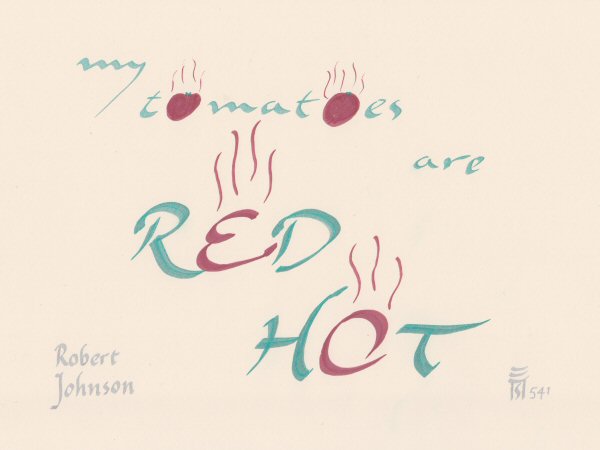 my
tomatoes
are
RED
HOT
Robert
Johnson
541